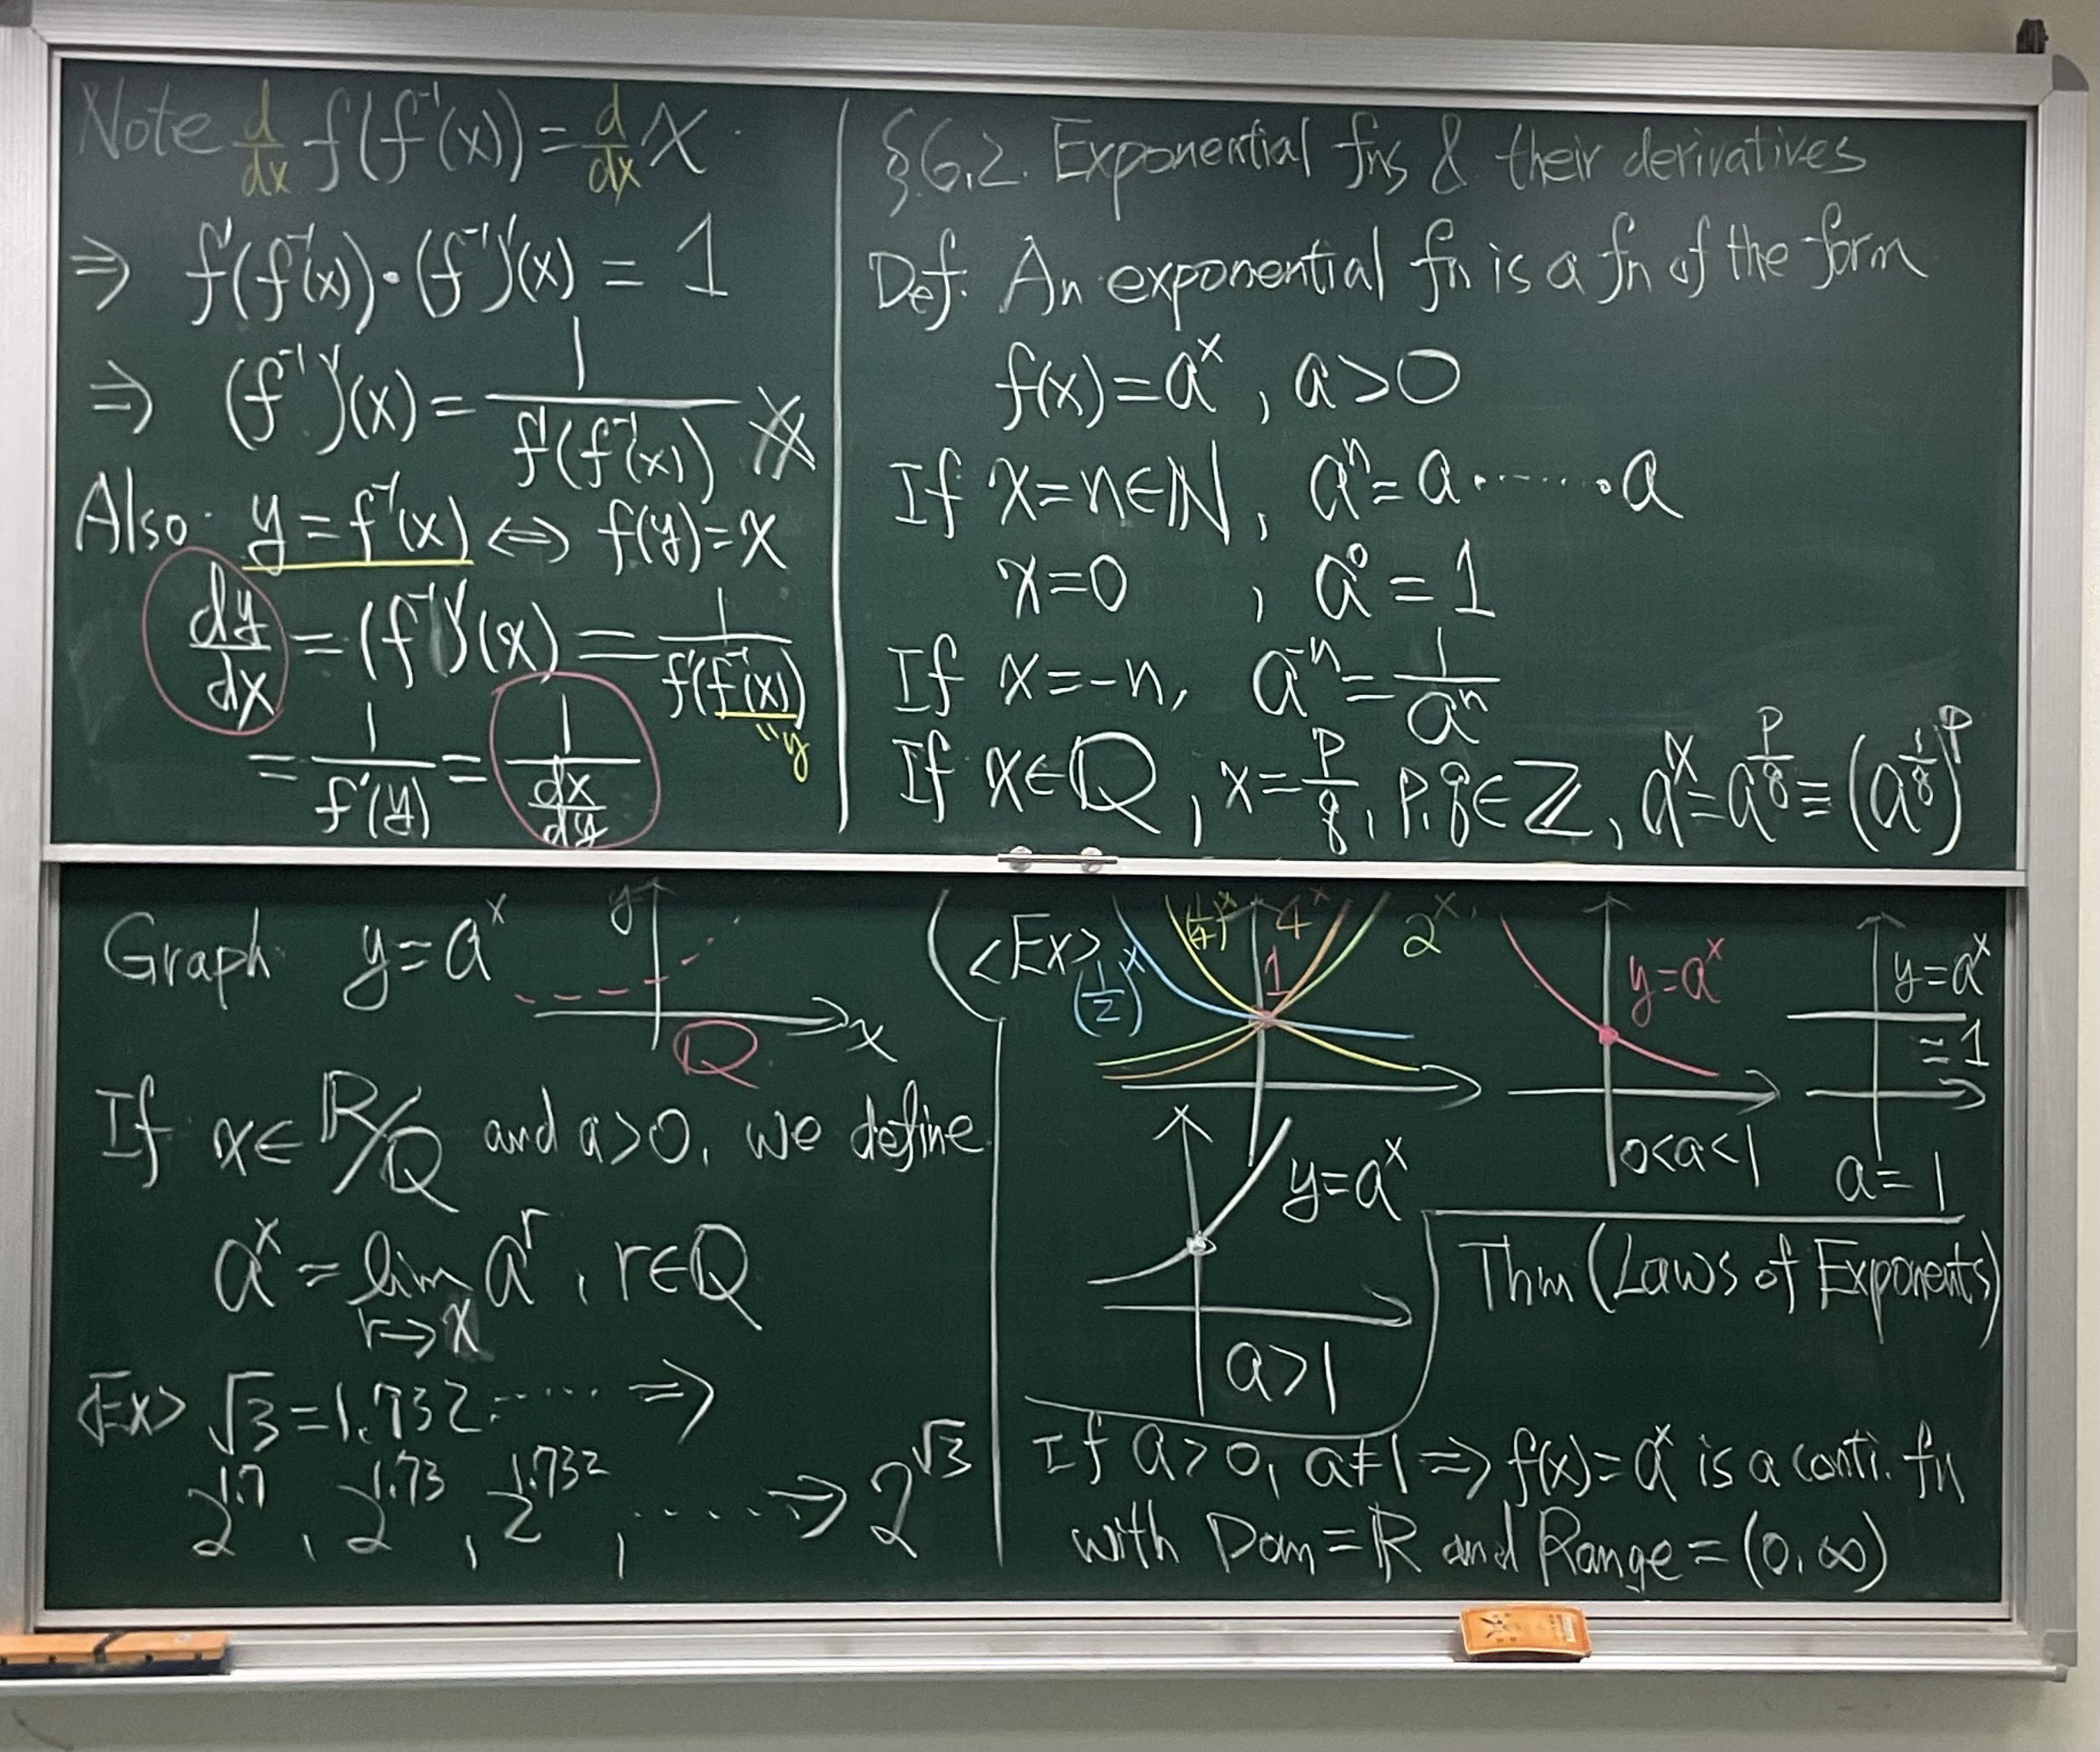 Note d/dx f(f⁻¹(x)) = d/dx x
⇒ f'(f⁻¹(x))·(f⁻¹)'(x) = 1
⇒ (f⁻¹)'(x) = 1/f'(f⁻¹(x)) ※
Also. y = f⁻¹(x) ⇔ f(y) = x
dy/dx = (f⁻¹)'(x) = 1/f'(f⁻¹(x))
"y
= 1/f'(y) = 1/(dx/dy)
§6.2. Exponential fns & their derivatives
Def. An exponential fn is a fn of the form
f(x) = aˣ, a>0
If x=n∈ℕ, aⁿ = a·······a
x=0, a⁰ = 1
If x=-n, a⁻ⁿ = 1/aⁿ
If x∈ℚ, x = p/q, p,q∈ℤ, aˣ = a^(p/q) ≡ (a^(1/q))^p
Graph. y = aˣ
y
x
ℚ
If x∈ ℝ/ℚ and a>0, we define
aˣ = lim_(r→x) aʳ, r∈ℚ
<Ex> √3 = 1.732····· ⇒
2^1.7, 2^1.73, 2^1.732, ····· → 2^√3
<Ex>
(1/2)ˣ
(1/4)ˣ
4ˣ
2ˣ
1
y=aˣ
0<a<1
y=aˣ
=1
a=1
y=aˣ
a>1
Thm (Laws of Exponents)
If a>0, a≠1 ⇒ f(x)=aˣ is a conti. fn
with Dom = ℝ and Range = (0, ∞)